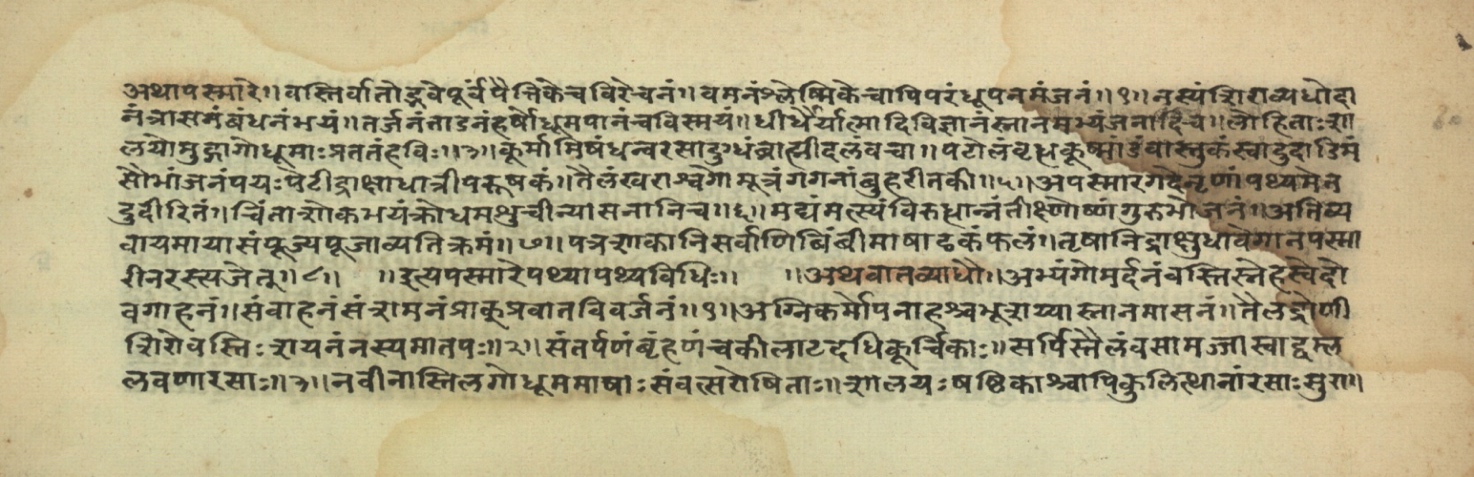 अथापस्मारे॥वस्तिर्वातोद्भवेपूर्वंपैत्तिकेचविरेचनं॥वमनंश्लेष्मिकेचापिपरंधूपनमंजनं॥१॥नस्यंशिराव्यधोदा
नंत्रासनंबंधनंभयं॥तर्जनंताडनंहर्षोधूमपानंचविस्मयं॥धीर्धैर्यात्मादिविज्ञानंस्नानमभ्यंजनादिच॥लोहिताःशा
लयोमुद्गागोधूमाःप्रततंहविः॥३॥कूर्मामिषंधन्वरसादुग्धंब्राह्मीदलंवचा॥पटोलंवृद्धकूष्मांडंवास्तुकंस्वादुदाडिमं
सौभांजनंपयःपेटीद्राक्षाधात्रीपरूषकं॥तैलंखराश्वगोमूत्रंगगनांबुहरीतकी॥५॥अपस्मारगदेनृणांपथ्यमेत
दुदीरितं॥चिंताशोकभयंक्रोधमशुचीन्यासनानिच॥६॥मद्यंमत्स्यंविरुद्धान्नंतीक्ष्णोष्णंगुरुभोजनं॥अतिव्य
वायमायासंपूज्यपूजाव्यतिक्रमं॥७॥पत्रशाकानिसर्वाणिबिंबीमाषाढकंफलं॥तृषानिद्राक्षुधावेगानपस्मा
रीनरस्त्यजेत्॥८॥ ॥इत्यपस्मारेपथ्यापथ्यविधिः॥ ॥अथवातव्याधौ॥अभ्यंगोमर्दनंवस्तिस्नेहस्वेदो
वगाहनं॥संवाहनंसंशमनंप्राक्प्रवातविवर्जनं॥१॥अग्निकर्मोपनाहश्चभूशय्यास्नानमासनं॥तैलद्रोणी
शिरोवस्तिःशयनंनस्यमातपः॥२॥संतर्पणंबृंहणंचकीलाटदधिकूर्चिकाः॥सर्पिस्तैलंवसामज्जास्वाद्वम्ल
लवणारसाः॥३॥नवीनास्तिलगोधूममाषाःसंवत्सरोषिताः॥शालयःषष्ठिकाश्चापिकुलित्थानांरसाःसुरा॥